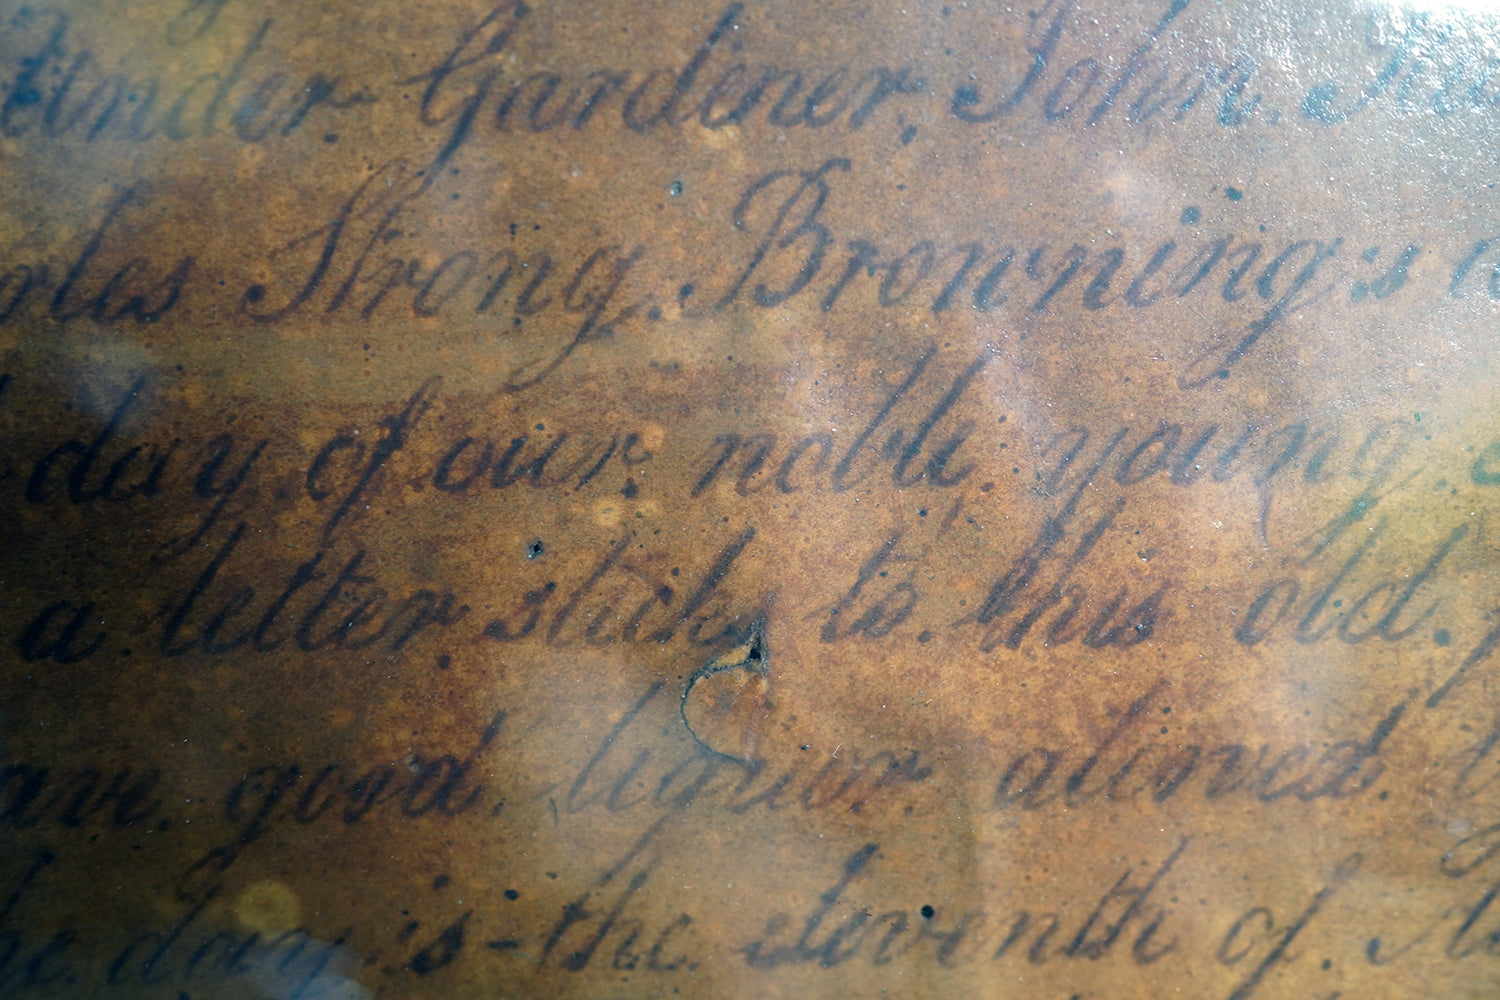 Under Gardener, John.
rles Strong. Browning's
day of our noble young
a letter stick to this old.
good liquor alowed.
day is the Seventh of